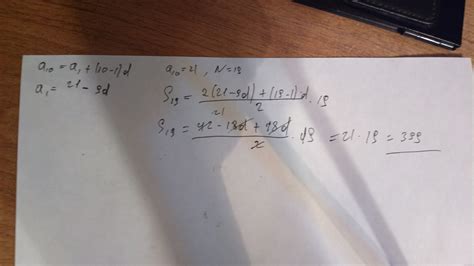 a₁₀ = a₁ + (10-1)d
a₁ = 21 - 9d
a₁₀ = 21, N = 19
S₁₉ = 2(21-9d) + (19-1)d / 2 · 19
S₁₉ = 42 - 18d + 18d / 2 · 19 = 21 · 19 = 399